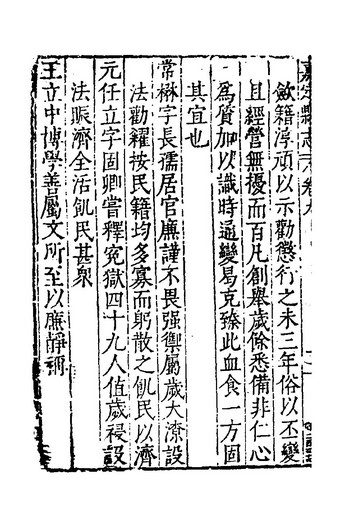 嘉定縣志卷九
斂籍淳頑以示勸懲行之未三年俗以丕變
且經管無擾而百凡創舉歲餘悉備非仁心
為質加以識時通變易克臻此血食一方固
其宜也
常楙字長孺居官廉謹不畏强禦屬歲大潦設
法勸糴按民籍均多寡而躬散之飢民以濟
元任立字固卿嘗釋寃獄四十九人值歲祲設
法賑濟全活飢民甚衆
王立中博學善屬文所至以廉靜稱